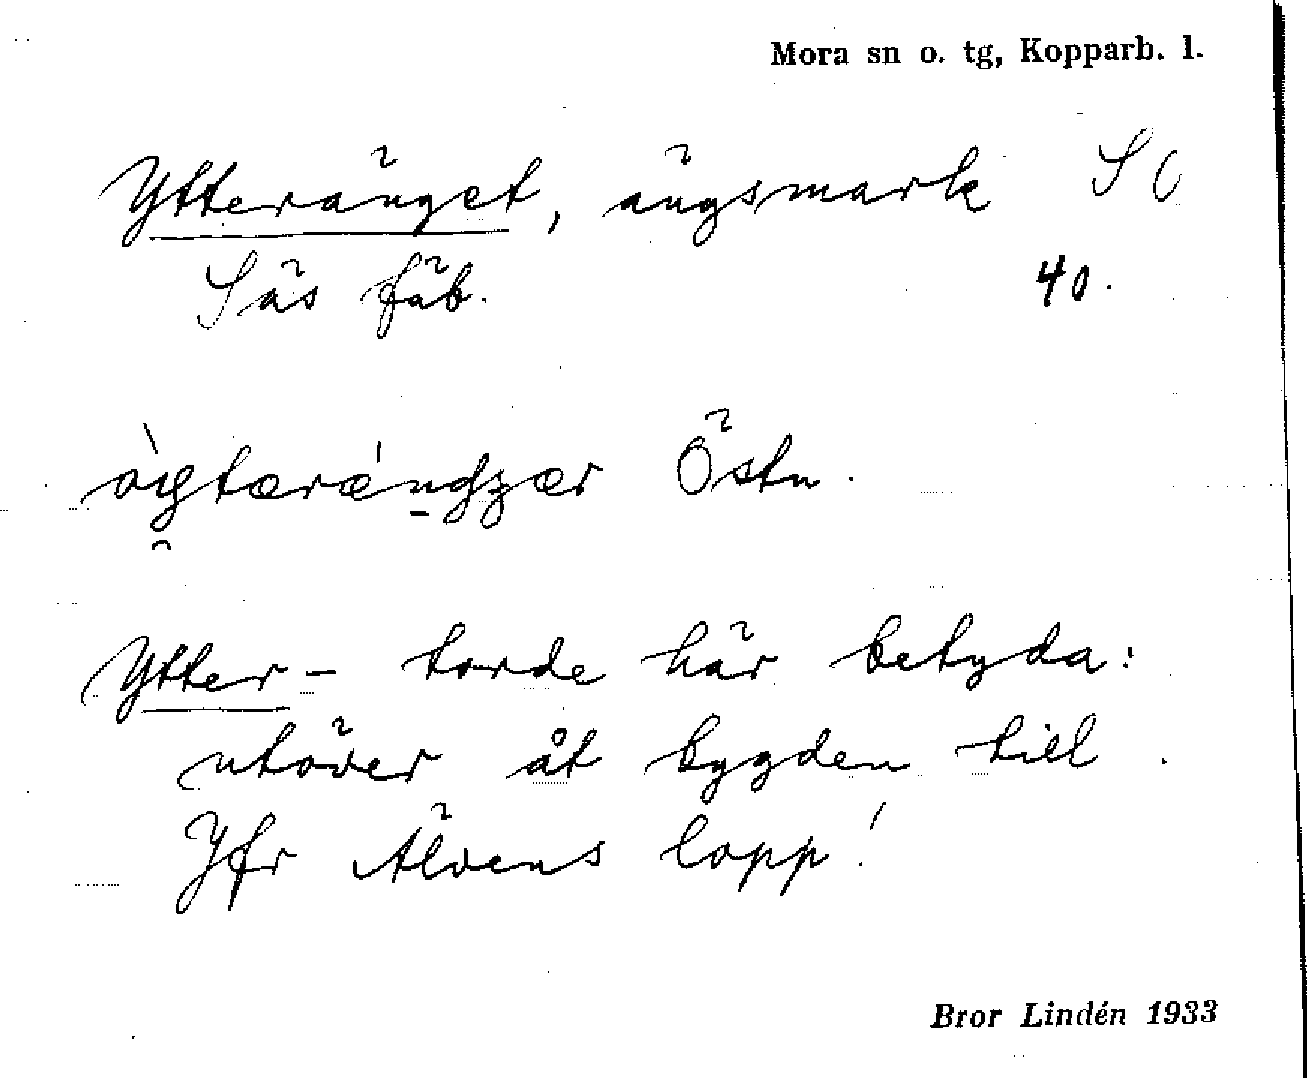 Mora sn o. tg, Kopparb. l.
Ytteränget, ängsmark SO
Säs fäb. 40.
Östn.
Ytter- torde här betyda:
utöver åt bygden till.
Jfr Älvens lopp!
Bror Lindén 1933